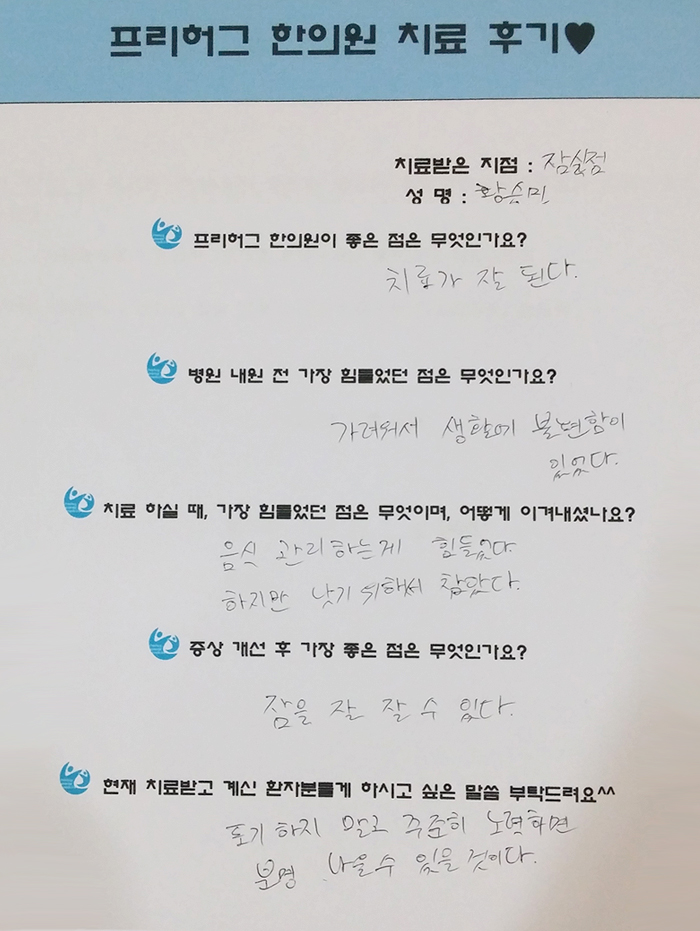 프리허그 한의원 치료 후기♥
치료받은 지점 : 잠실점
성 명 : 황승민
프리허그 한의원이 좋은 점은 무엇인가요?
치료가 잘 된다.
병원 내원 전 가장 힘들었던 점은 무엇인가요?
가려워서 생활에 불편함이
있었다.
치료 하실 때, 가장 힘들었던 점은 무엇이며, 어떻게 이겨내셨나요?
음식 관리하는게 힘들었다
하지만 낫기 위해서 참았다.
증상 개선 후 가장 좋은 점은 무엇인가요?
잠을 잘 잘 수 있다.
현재 치료받고 계신 환자분들게 하시고 싶은 말씀 부탁드려요^^
포기 하지 말고 꾸준히 노력하면
분명 나을수 있을 것이다.